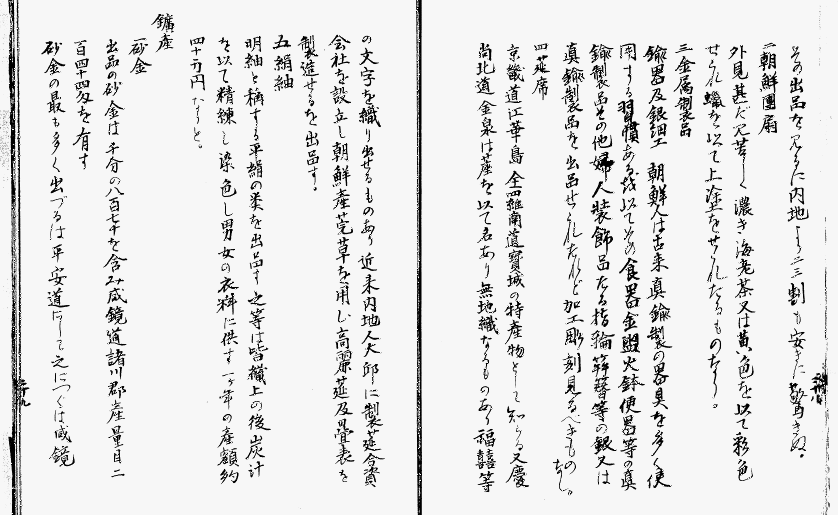 その出品を見るに内地より二三割も安きに驚きぬ。
二朝鮮團扇
外見甚だ見苦しく濃き海老茶又は黄色を以て彩色
せられ蠟を以て上塗をせられたるものなり。
三金属製品
鍮器及銀細工 朝鮮人は古来真鍮製の器具を多く使
用する習慣ある故以てその食器金盥火鉢便器等の真
鍮製品その他婦人装飾品たる指輪簪等の銀又は
真鍮製品を出品せられたれど加工彫刻見るべきものなし。
四莚席
京畿道江華島全羅南道寶城の特産物として知らる又慶
尚北道金泉は莚を以て名あり無地織なるものあり福囍等
の文字を織り出せるものあり近来内地人大邱に製莚合資
会社を設立し朝鮮産莞草を用い高麗莚及疊表を
製造せるを出品す。
五絹紬
明紬と稱する平絹の类を出品す之等は皆織上の後炭汁
を以て精練し染色し男女の衣料に供す一ヶ年の産額約
四十万円なりと。
鑛産
一砂金
出品の砂金は千分の八百七十を含み咸鏡道諸川郡産量目二
百四十四匁を有す
砂金の最も多く出づるは平安道にして之につぐは咸鏡